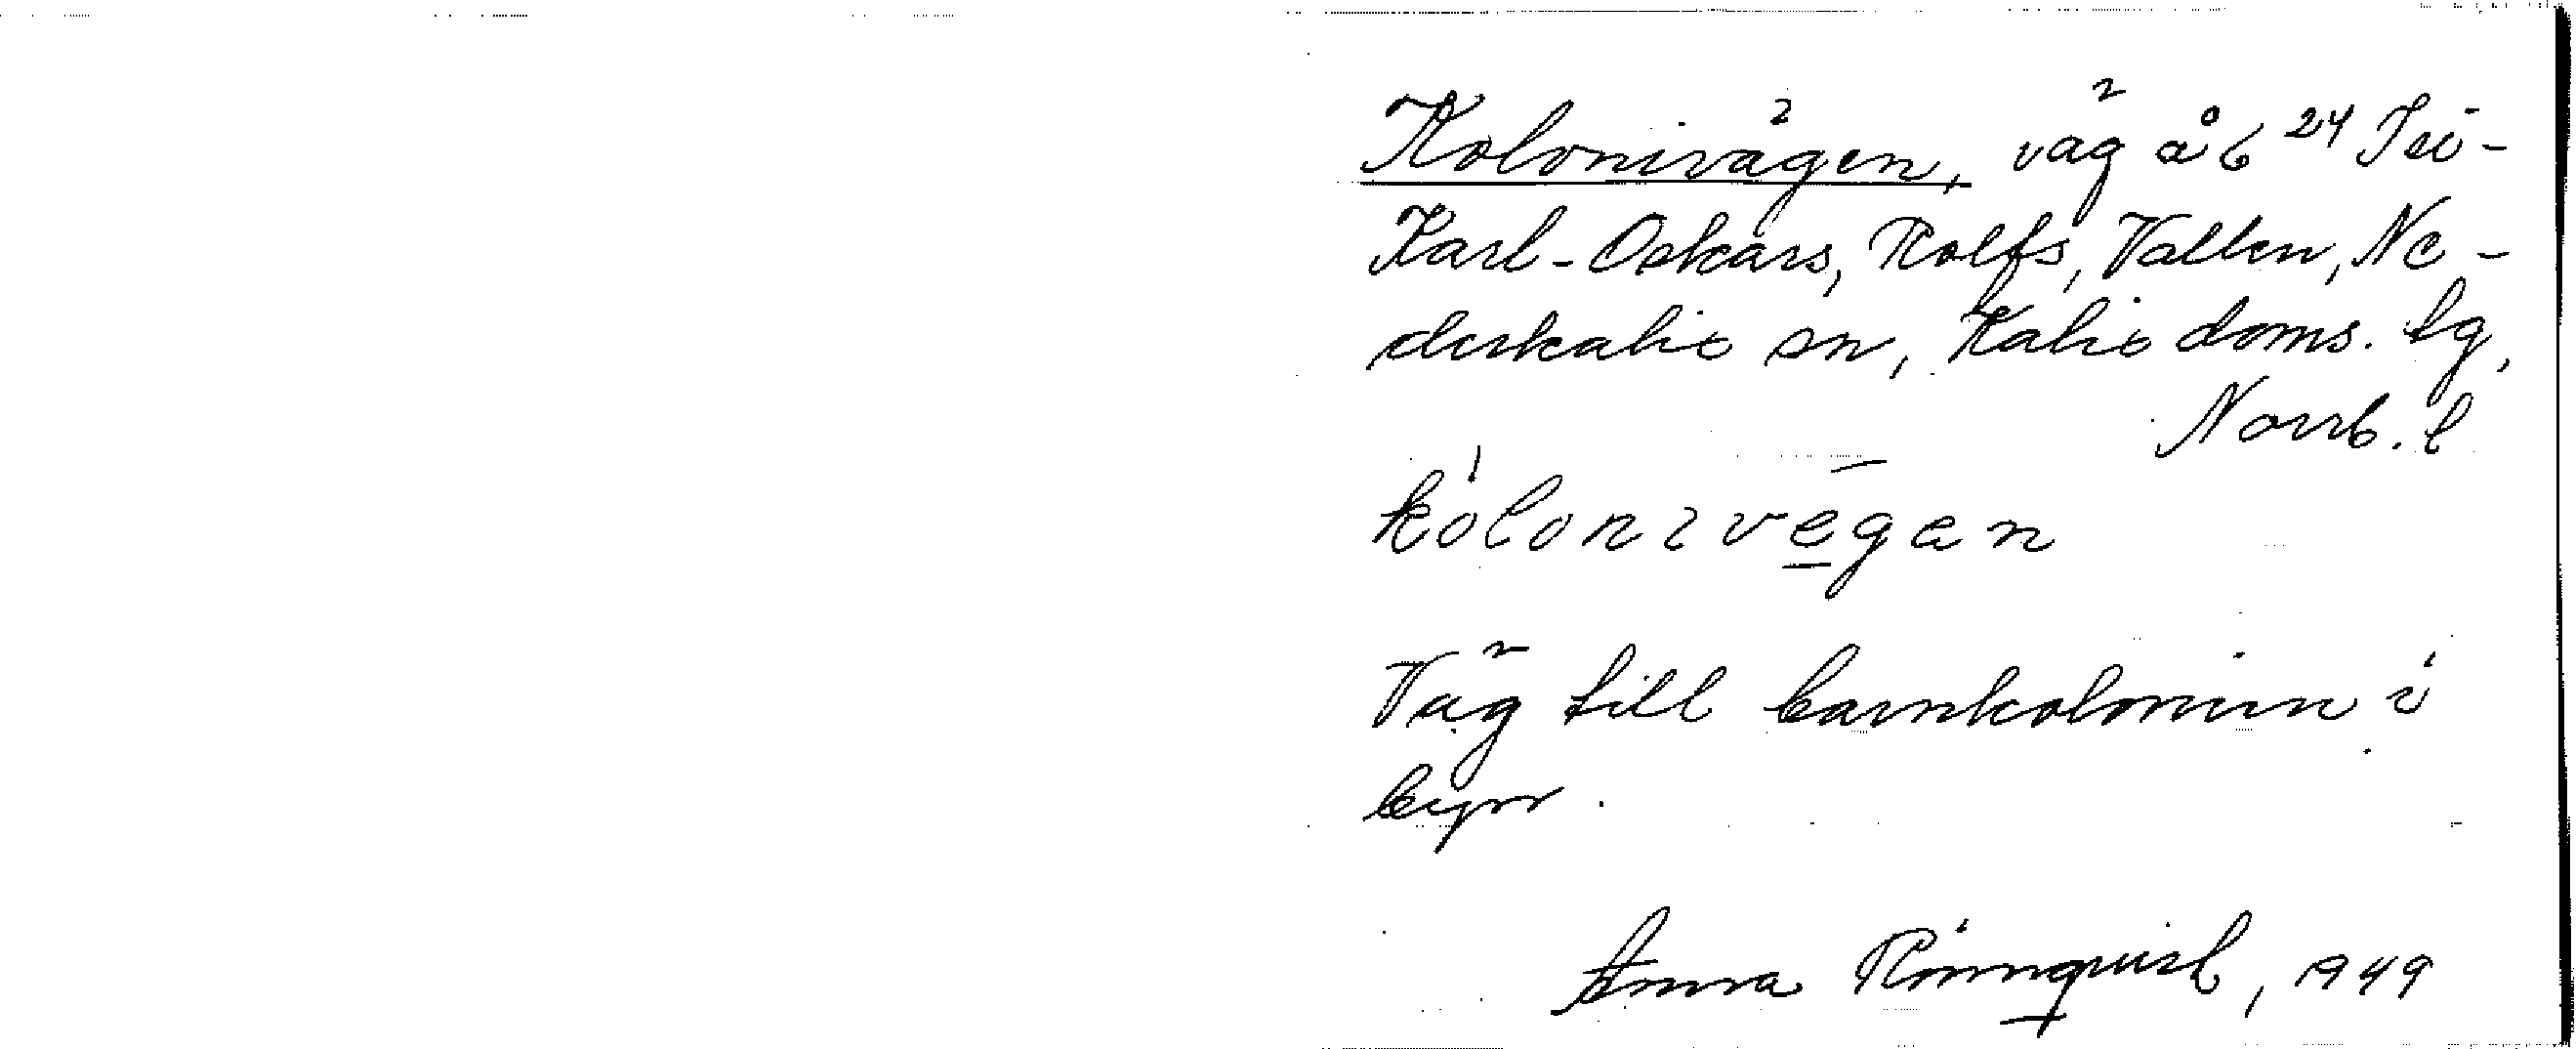 Kolonivägen, väg å 6 24 Pei-
Karl-Oskars, Rolfs, Vallen, Ne-
derkalix sn, Kalix doms. lg,
Norrb. l
kolonivēgan
Väg till barnkolonin i
byn.
Anna Rönnqvist, 1949